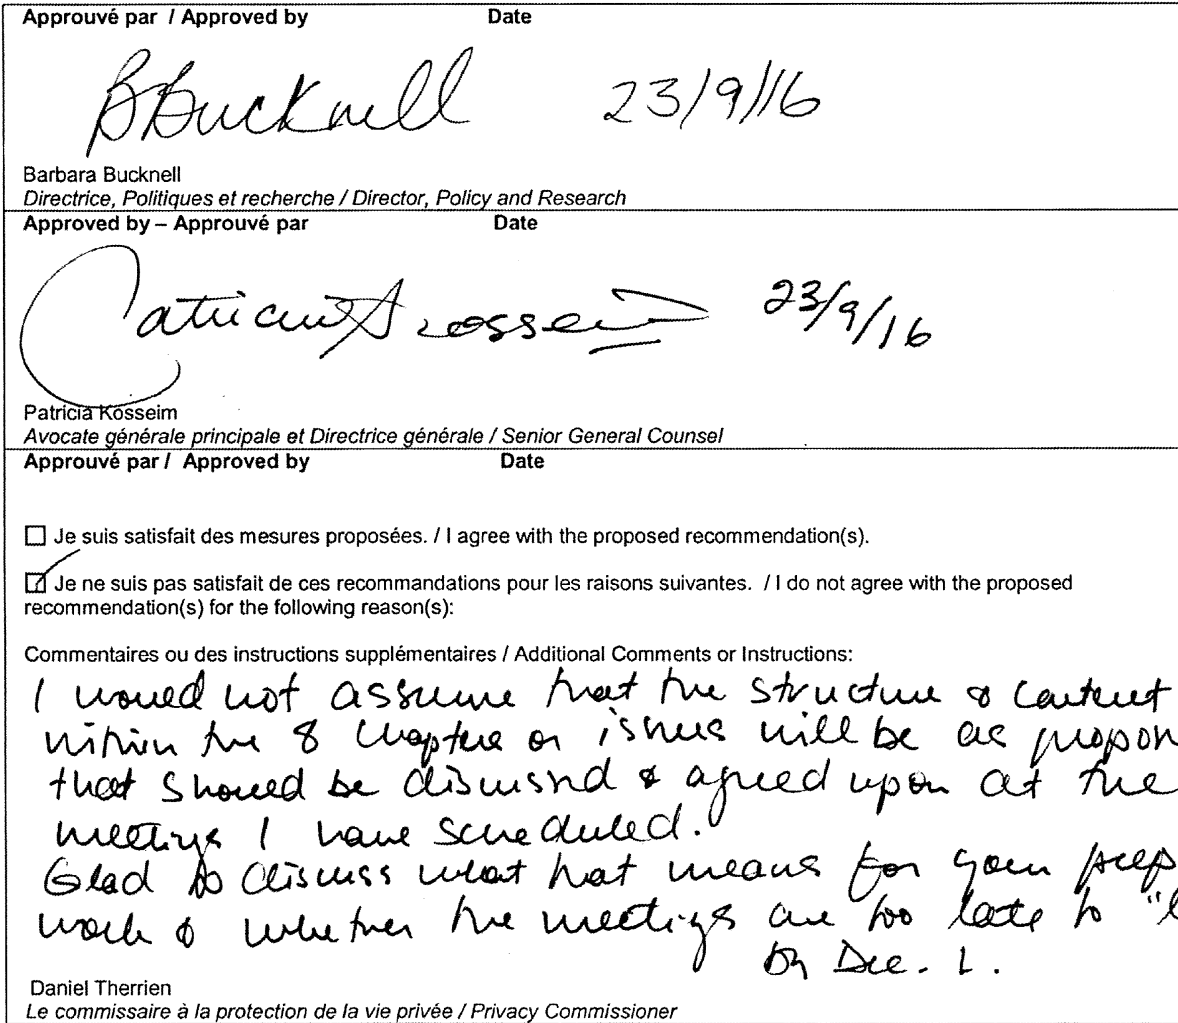 Approuvé par / Approved by Date
BBucknell 23/9/16
Barbara Bucknell
Directrice, Politiques et recherche / Director, Policy and Research
Approved by – Approuvé par Date
Patricia Kosseim 23/9/16
Patricia Kosseim
Avocate générale principale et Directrice générale / Senior General Counsel
Approuvé par / Approved by Date
☐ Je suis satisfait des mesures proposées. / I agree with the proposed recommendation(s).
☑ Je ne suis pas satisfait de ces recommandations pour les raisons suivantes. / I do not agree with the proposed
recommendation(s) for the following reason(s):
Commentaires ou des instructions supplémentaires / Additional Comments or Instructions:
I would not assume that the structure & content
within the 8 chapters or issues will be as propos
that should be discussed & agreed upon at the
meetings I have scheduled.
Glad to discuss what that means for your prep
work & whether the meetings are too late to "l
by Dec. 1.
Daniel Therrien
Le commissaire à la protection de la vie privée / Privacy Commissioner